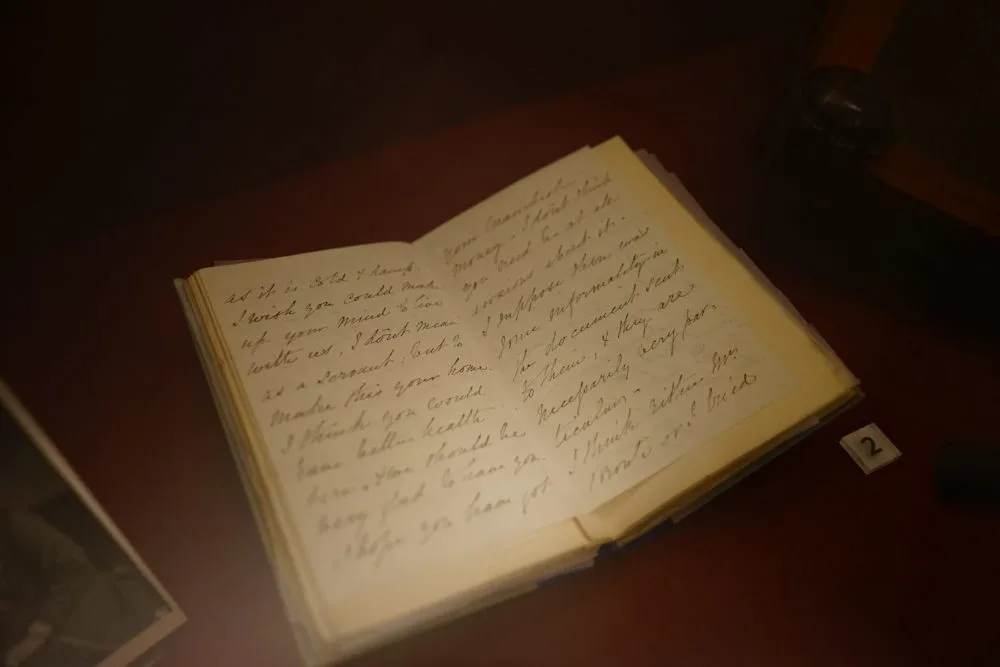 as it is cold & damp.
I wish you could make
up your mind to live
with us, I don't mean
as a servant; but to
make this your home.
I think you would
have better health
here, & we should be
very glad to have you.
I hope you have got
your
money. I don't think
you need be at all
about it.
I suppose there was
some informality in
the document sent
to them, & they are
necessarily very par-
ticular.
I think either Mr
or I
2